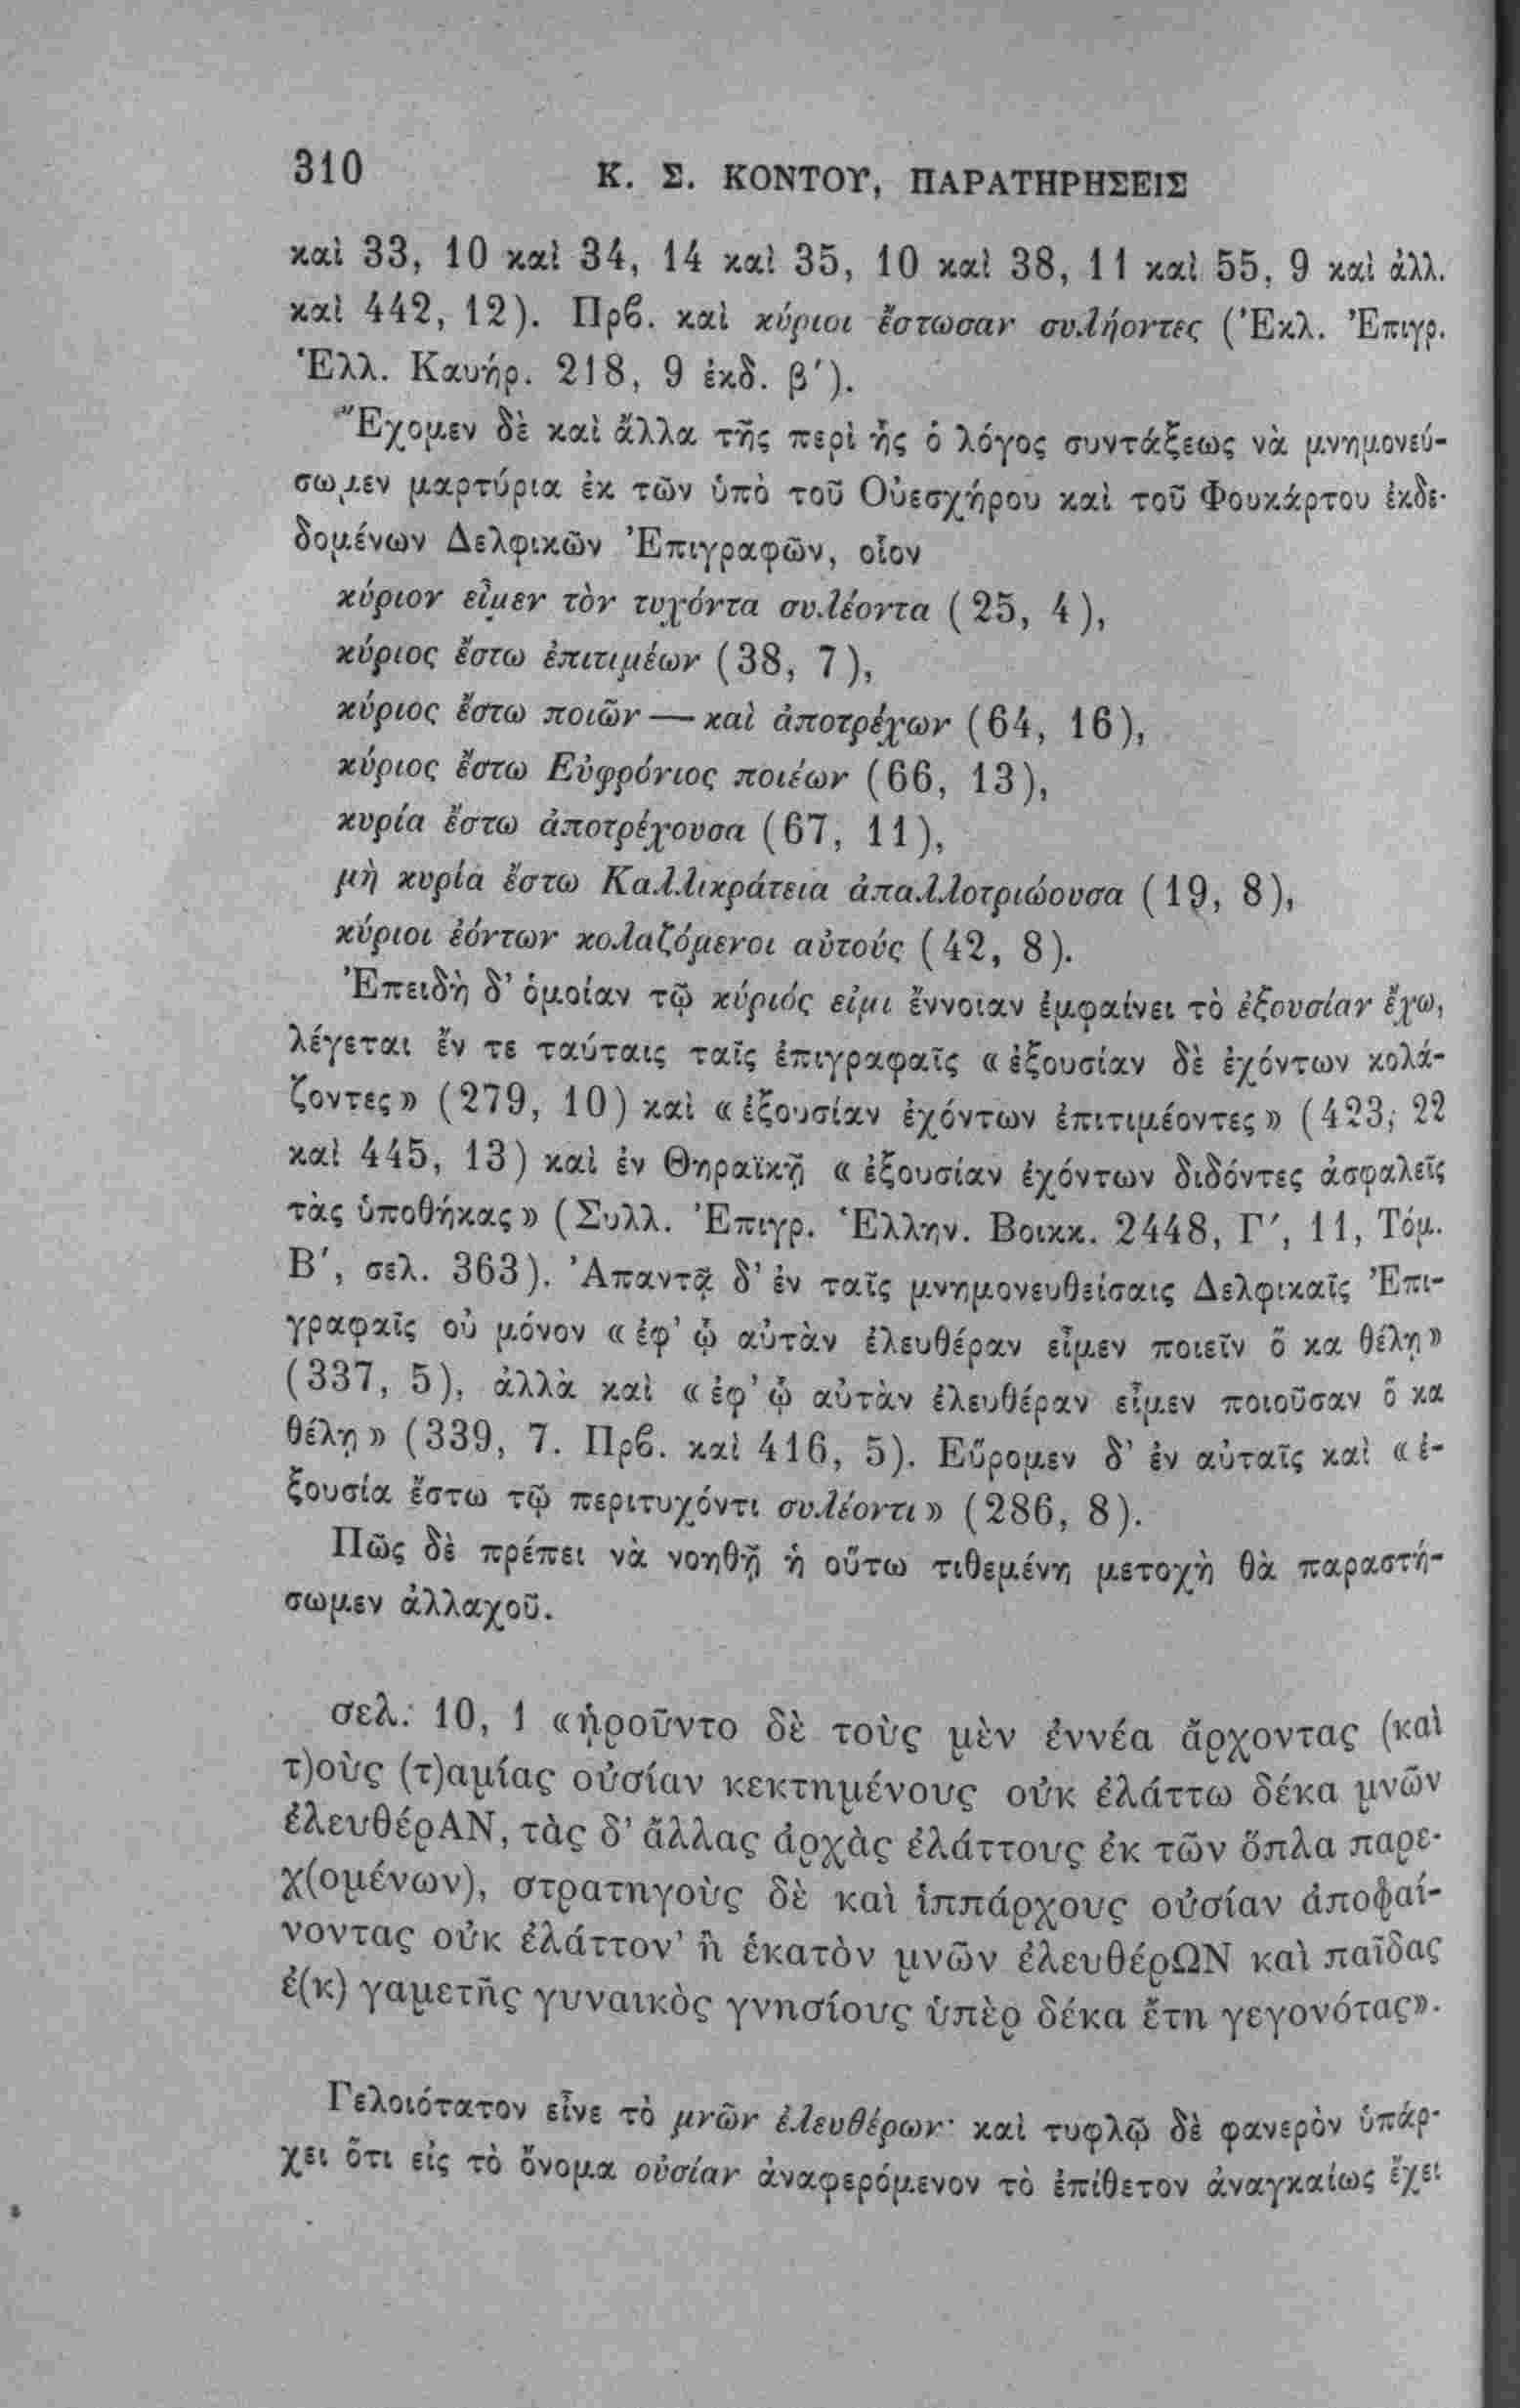 310
Κ. Σ. ΚΟΝΤΟΥ, ΠΑΡΑΤΗΡΗΣΕΙΣ
καὶ 33, 10 καὶ 34, 14 καὶ 35, 10 καὶ 38, 11 καὶ 55, 9 καὶ ἀλλ.
καὶ 442, 12). Πρβ. καὶ κύριοι ἔστωσαν συλήοντες (Ἐκλ. Ἐπιγρ.
Ἑλλ. Καυήρ. 218, 9 ἐκδ. β΄).
Ἔχομεν δὲ καὶ ἄλλα τῆς περὶ ἧς ὁ λόγος συντάξεως νὰ μνημονεύ-
σωμεν μαρτύρια ἐκ τῶν ὑπὸ τοῦ Οὐεσχήρου καὶ τοῦ Φουκάρτου ἐκδε-
δομένων Δελφικῶν Ἐπιγραφῶν, οἷον
κύριον εἶμεν τὸν τυχόντα συλέοντα (25, 4),
κύριος ἔστω ἐπιτιμέων (38, 7),
κύριος ἔστω ποιῶν — καὶ ἀποτρέχων (64, 16),
κύριος ἔστω Εὐφρόνιος ποιέων (66, 13),
κυρία ἔστω ἀποτρέχουσα (67, 11),
μὴ κυρία ἔστω Καλλικράτεια ἀπαλλοτριώουσα (19, 8),
κύριοι ἐόντων κολαζόμενοι αὐτούς (42, 8).
Ἐπειδὴ δ’ ὁμοίαν τῷ κύριός εἰμι ἔννοιαν ἐμφαίνει τὸ ἐξουσίαν ἔχω,
λέγεται ἔν τε ταύταις ταῖς ἐπιγραφαῖς «ἐξουσίαν δὲ ἐχόντων κολά-
ζοντες» (279, 10) καὶ «ἐξουσίαν ἐχόντων ἐπιτιμέοντες» (423, 22
καὶ 445, 13) καὶ ἐν Θηραϊκῇ «ἐξουσίαν ἐχόντων διδόντες ἀσφαλεῖς
τὰς ὑποθήκας» (Συλλ. Ἐπιγρ. Ἑλλην. Βοικκ. 2448, Γ΄, 11, Τόμ.
Β΄, σελ. 363). Ἀπαντᾷ δ’ ἐν ταῖς μνημονευθείσαις Δελφικαῖς Ἐπι-
γραφαῖς οὐ μόνον «ἐφ’ ᾧ αὐτὰν ἐλευθέραν εἶμεν ποιεῖν ὅ κα θέλῃ»
(337, 5), ἀλλὰ καὶ «ἐφ’ ᾧ αὐτὰν ἐλευθέραν εἶμεν ποιοῦσαν ὅ κα
θέλῃ» (339, 7. Πρβ. καὶ 416, 5). Εὕρομεν δ’ ἐν αὐταῖς καὶ «ἐ-
ξουσία ἔστω τῷ περιτυχόντι συλέοντι» (286, 8).
Πῶς δὲ πρέπει νὰ νοηθῇ ἡ οὕτω τιθεμένη μετοχὴ θὰ παραστή-
σωμεν ἀλλαχοῦ.
σελ. 10, 1 «ᾑροῦντο δὲ τοὺς μὲν ἐννέα ἄρχοντας (καὶ
τ)οὺς (τ)αμίας οὐσίαν κεκτημένους οὐκ ἐλάττω δέκα μνῶν
ἐλευθέρΑΝ, τὰς δ’ ἄλλας ἀρχὰς ἐλάττους ἐκ τῶν ὅπλα παρε-
χ(ομένων), στρατηγοὺς δὲ καὶ ἱππάρχους οὐσίαν ἀποφαί-
νοντας οὐκ ἐλάττον’ ἢ ἑκατὸν μνῶν ἐλευθέρΩΝ καὶ παῖδας
ἐ(κ) γαμετῆς γυναικὸς γνησίους ὑπὲρ δέκα ἔτη γεγονότας».
Γελοιότατον εἶνε τὸ μνῶν ἐλευθέρων· καὶ τυφλῷ δὲ φανερὸν ὑπάρ-
χει ὅτι εἰς τὸ ὄνομα οὐσίαν ἀναφερόμενον τὸ ἐπίθετον ἀναγκαίως ἔχει